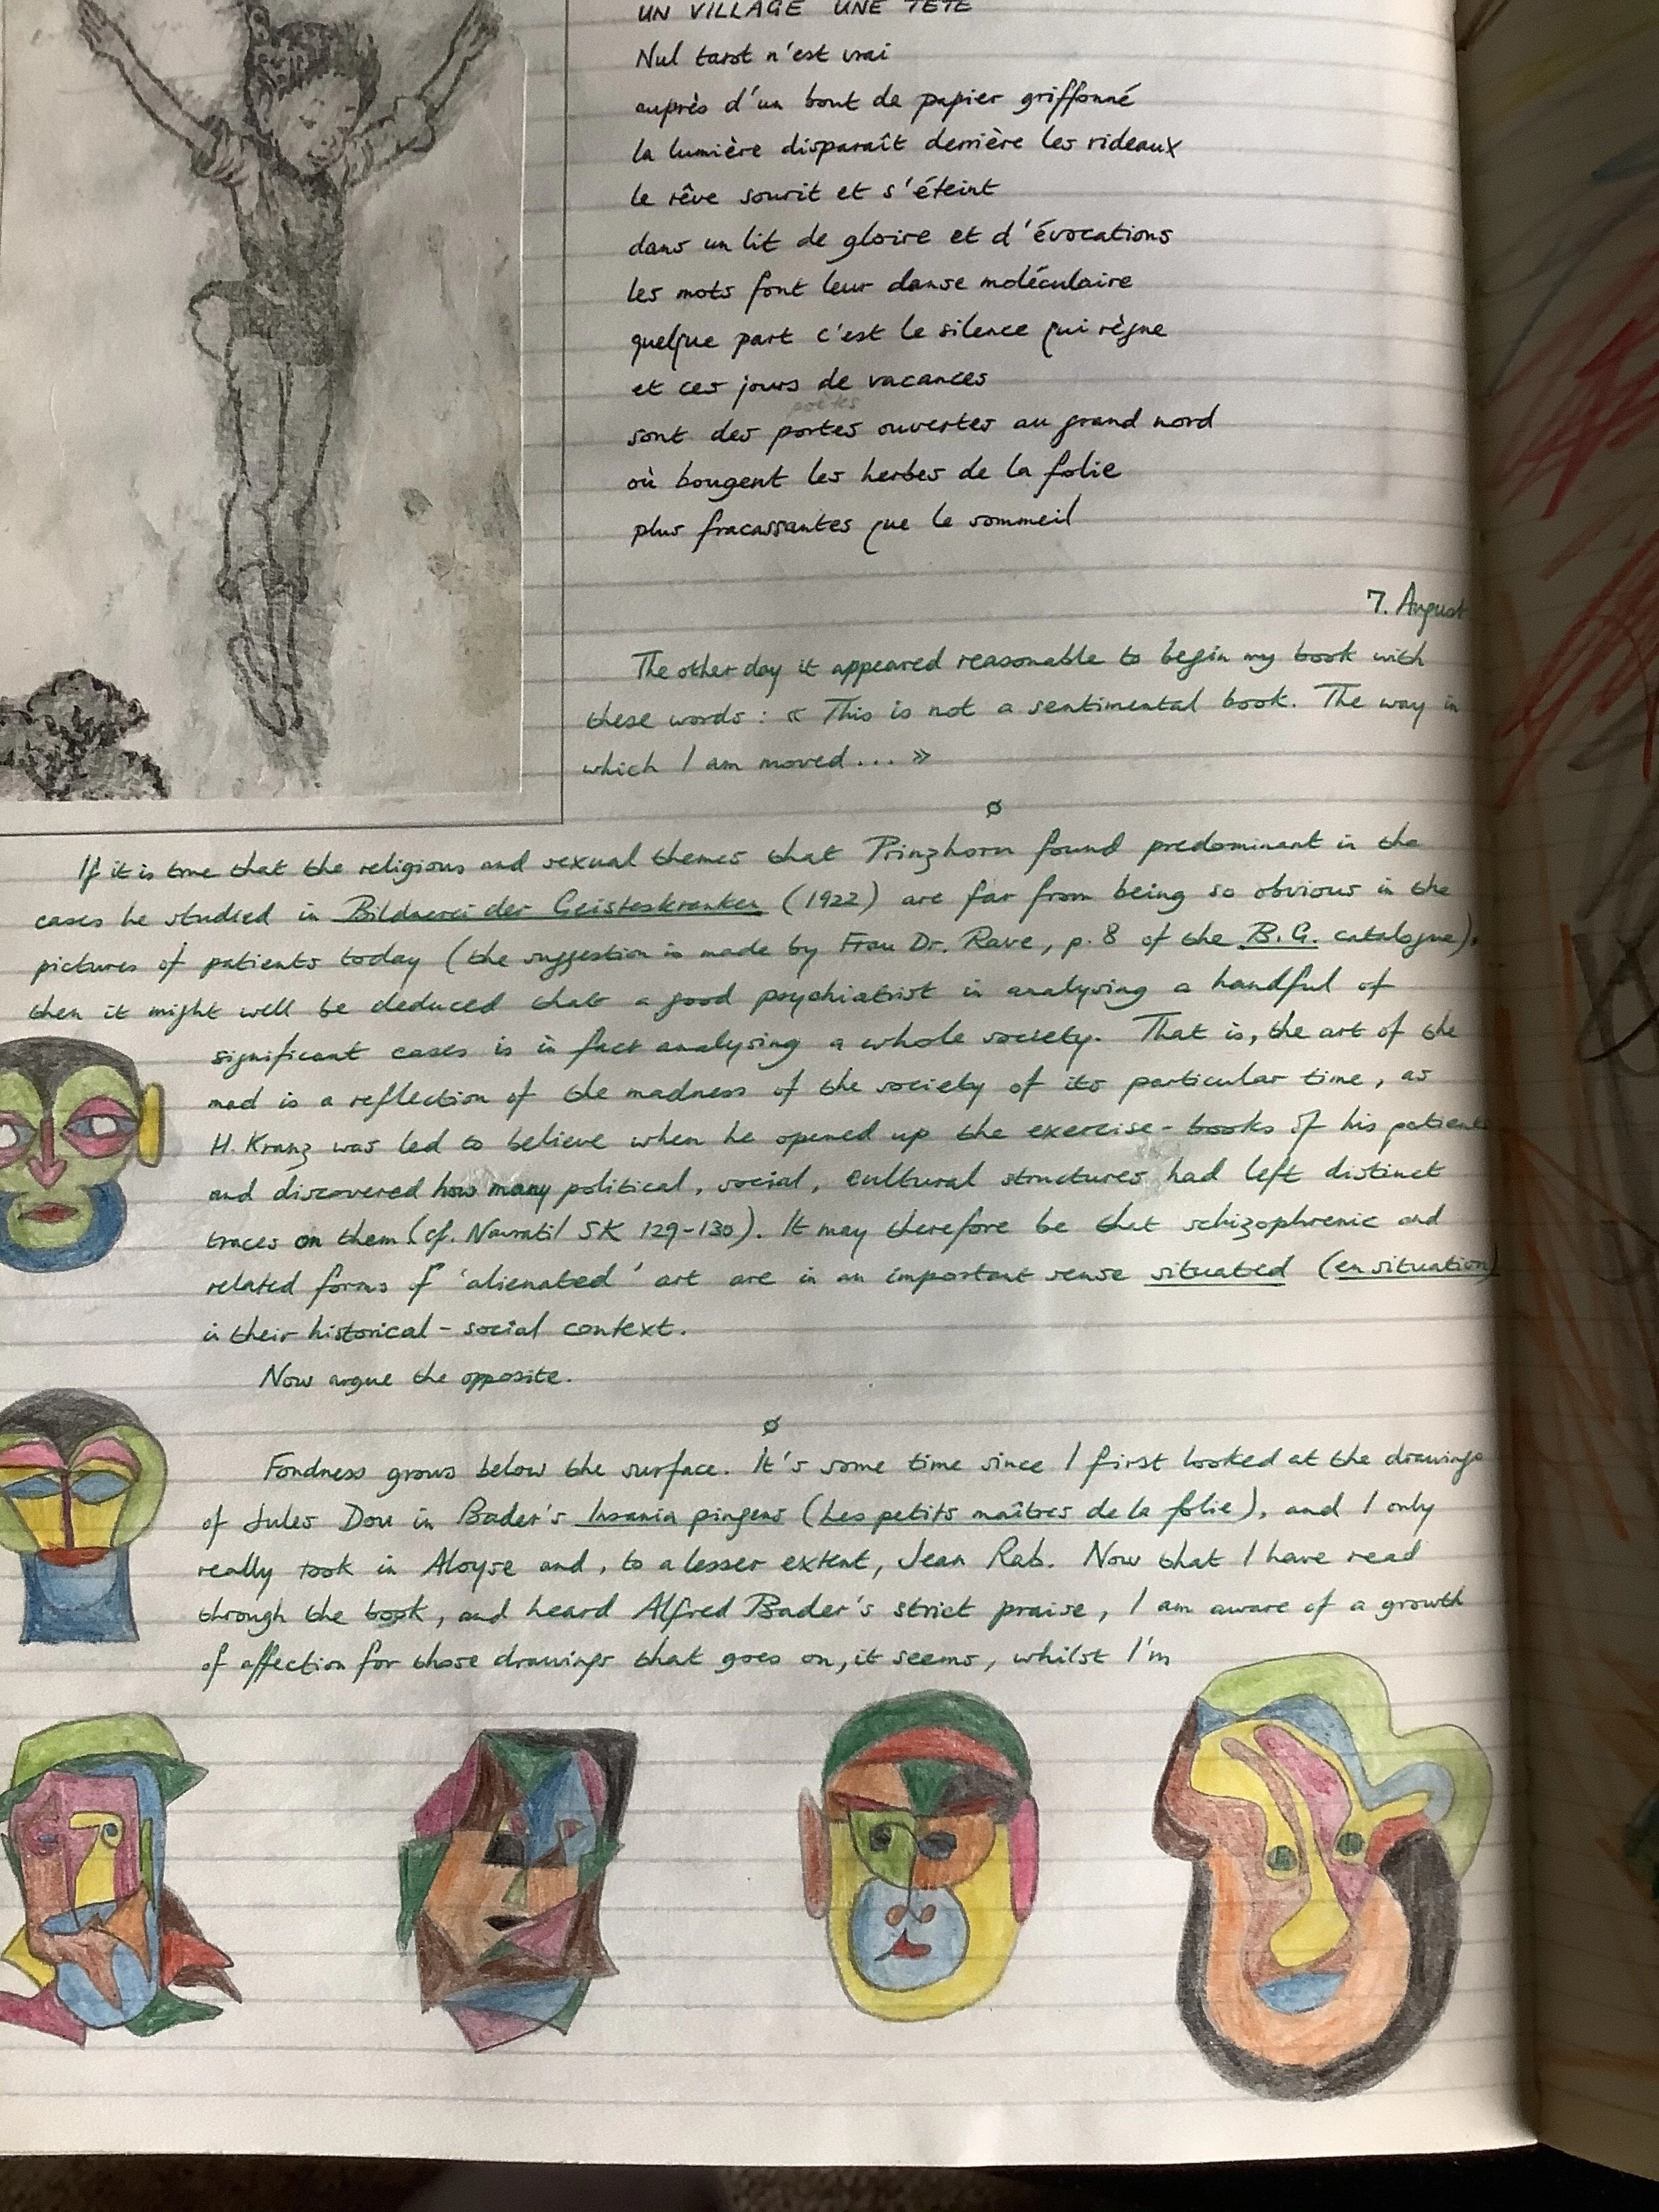 UN VILLAGE UNE TÊTE
Nul tarot n'est vrai
auprès d'un bout de papier griffonné
la lumière disparaît derrière les rideaux
le rêve sourit et s'éteint
dans un lit de gloire et d'évocations
les mots font leur danse moléculaire
quelque part c'est le silence qui règne
et ces jours de vacances
poètes
sont des portes ouvertes au grand nord
où bougent les herbes de la folie
plus fracassantes que le sommeil
7. August
The other day it appeared reasonable to begin my book with
these words : « This is not a sentimental book. The way in
which I am moved... »
ø
If it is true that the religious and sexual themes that Prinzhorn found predominant in the
cases he studied in Bildnerei der Geisteskranken (1922) are far from being so obvious in the
pictures of patients today (the suggestion is made by Frau Dr. Rave, p. 8 of the B.G. catalogue),
then it might well be deduced that a good psychiatrist in analysing a handful of
significant cases is in fact analysing a whole society. That is, the art of the
mad is a reflection of the madness of the society of its particular time, as
H. Kranz was led to believe when he opened up the exercise-books of his patients
and discovered how many political, social, cultural structures had left distinct
traces on them (cf. Navratil SK 129-130). It may therefore be that schizophrenic and
related forms of 'alienated' art are in an important sense situated (en situation)
in their historical-social context.
Now argue the opposite.
ø
Fondness grows below the surface. It's some time since I first looked at the drawings
of Jules Dou in Bader's Insania pingens (Les petits maîtres de la folie), and I only
really took in Aloyse and, to a lesser extent, Jean Rab. Now that I have read
through the book, and heard Alfred Bader's strict praise, I am aware of a growth
of affection for those drawings that goes on, it seems, whilst I'm